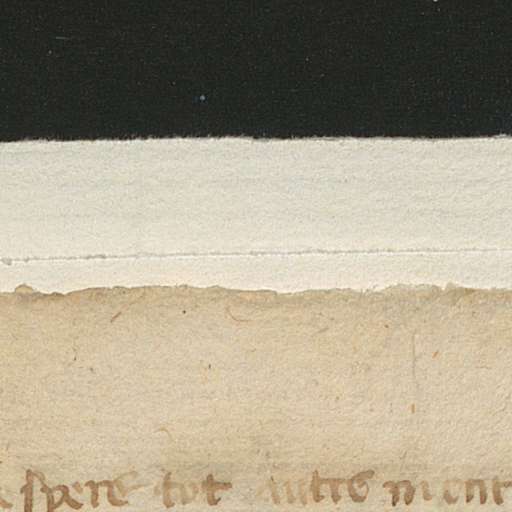 spere tot autre ment